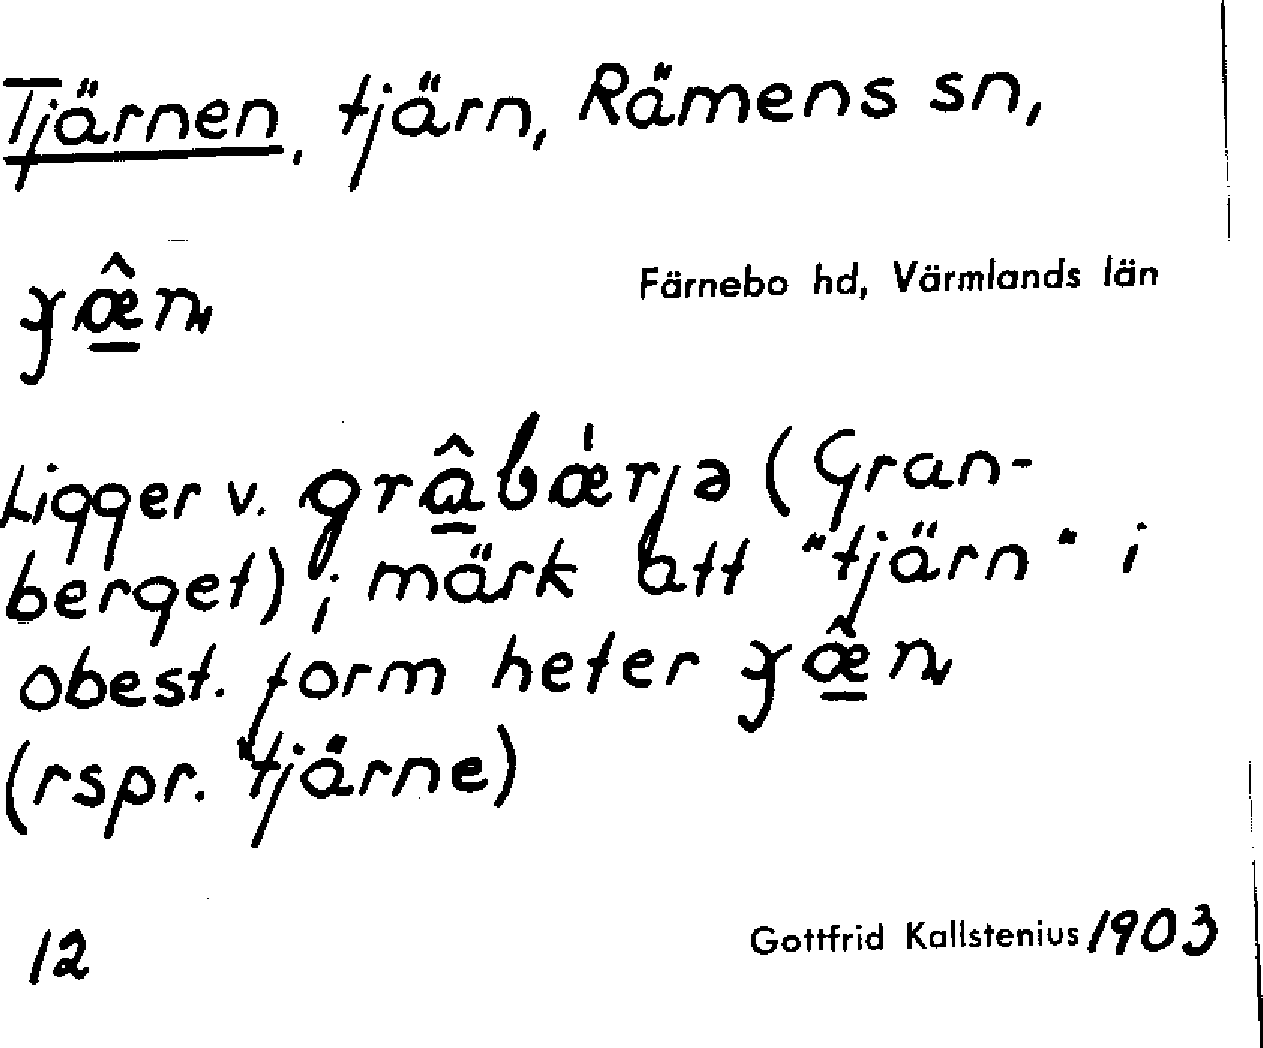 Tjärnen, tjärn, Rämens sn,
Färnebo hd, Värmlands län
Ligger v. (Gran-
berget); märk att "tjärn" i
obest. form heter
(rspr. "tjärne)
12
Gottfrid Kallstenius 1903